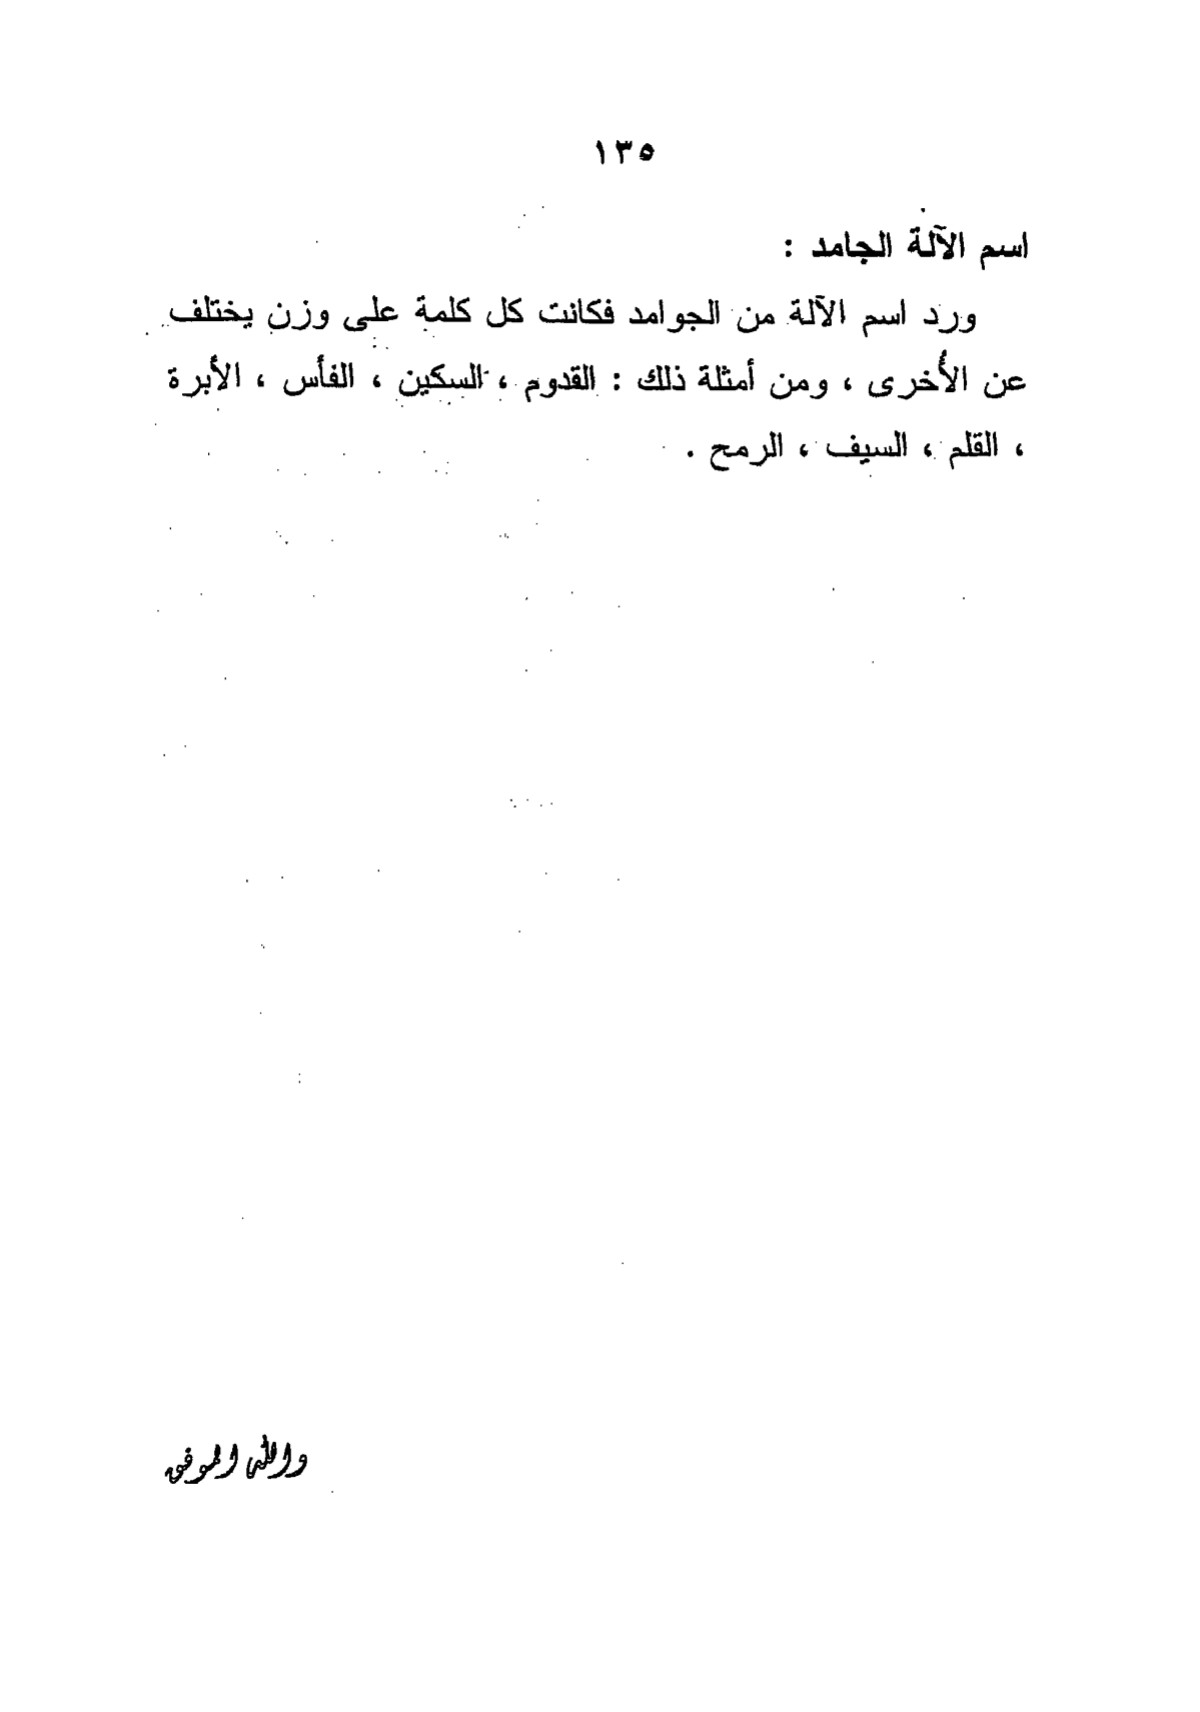 ١٣٥
اسم الآلة الجامد :
ورد اسم الآلة من الجوامد فكانت كل كلمة على وزن يختلف
عن الأُخرى ، ومن أمثلة ذلك : القدوم ، السكين ، الفأس ، الأبرة
، القلم ، السيف ، الرمح .
والله الموفق